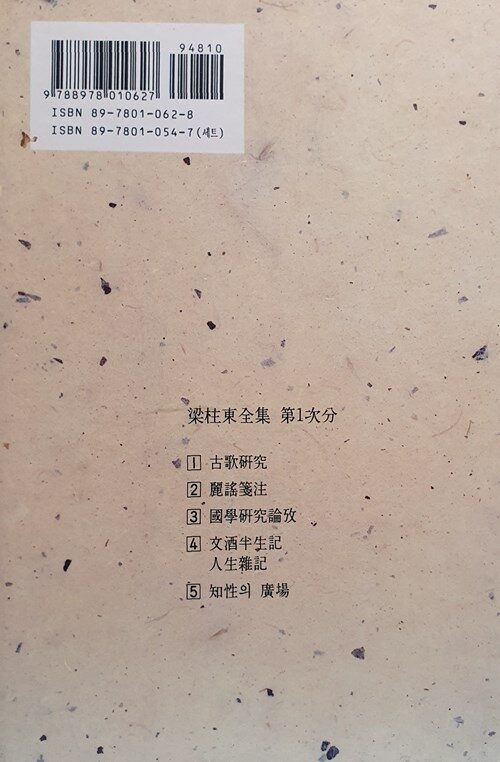 94810
9 788978 010627
ISBN 89-7801-062-8
ISBN 89-7801-054-7(세트)
梁柱東全集 第1次分
1 古歌硏究
2 麗謠箋注
3 國學硏究論攷
4 文酒半生記
人生雜記
5 知性의 廣場